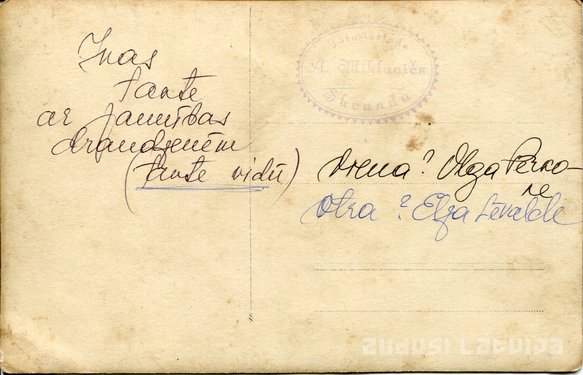 Inas
tante
ar jaunības
draudzeném
(tante vidū)
A. Miklavičs
Skrundā
Viena? Olga Perko-
ne
Otra? Elza Lēvalde
zudusi Latvija